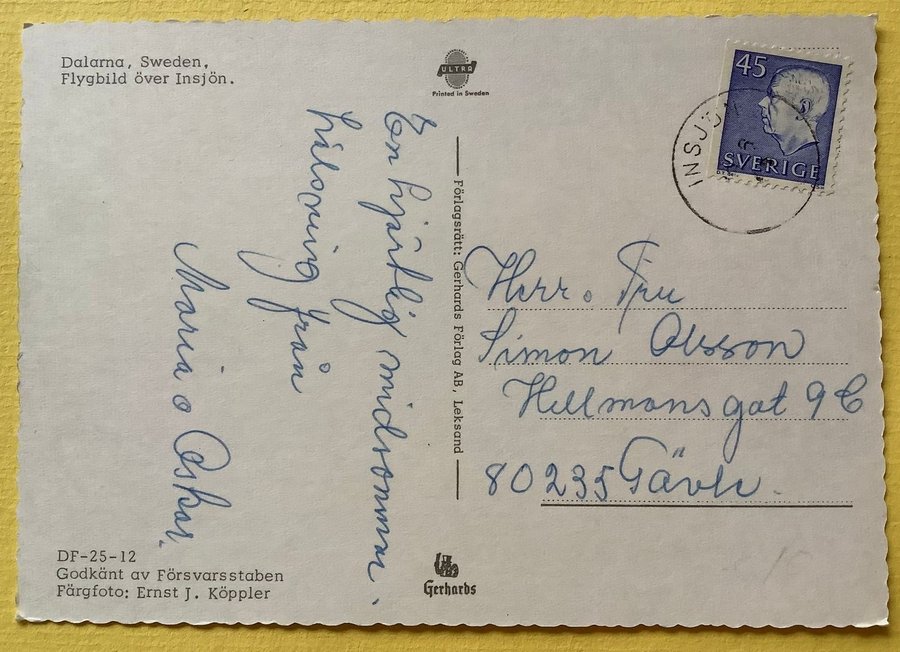 Dalarna, Sweden,
Flygbild över Insjön.
ULTRA
Printed in Sweden
45
SVERIGE
INSJÖN
En hjärtlig midsommar-
hälsning från
Maria o Oskar.
Förlagsrätt: Gerhards Förlag AB, Leksand
Herr o Fru
Simon Olsson
Hellmansgat 9 C
80235 Gävle.
DF-25-12
Godkänt av Försvarsstaben
Färgfoto: Ernst J. Köppler
Gerhards